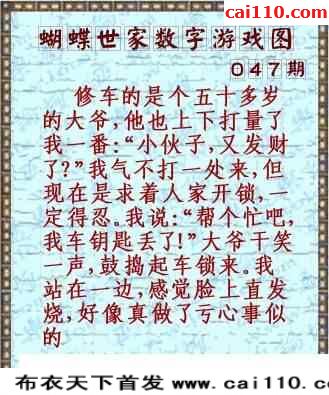 cai110.com
蝴蝶世家数字游戏图
047期
修车的是个五十多岁
的大爷,他也上下打量了
我一番:“小伙子,又发财
了?”我气不打一处来,但
现在是求着人家开锁,一
定得忍。我说:“帮个忙吧,
我车钥匙丢了!”大爷干笑
一声,鼓捣起车锁来。我
站在一边,感觉脸上直发
烧,好像真做了亏心事似
的
布衣天下首发 www.cai110.c